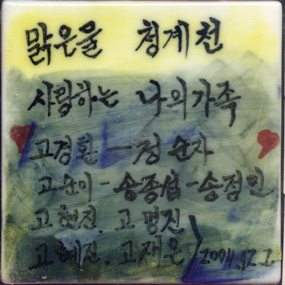 맑은물 청계천
사랑하는 나의가족
고경환 — 정순자
고순이 - 송종섭 - 송정민
고현진. 고명진
고혜진. 고재은 2004.12.2.